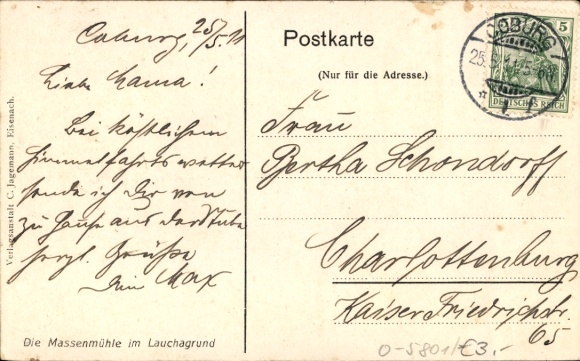 Coburg, 25/5.11
Liebe Mama!
Bei köstlichem
Himmelfahrtswetter
sende ich Dir von
zu Hause aus der Stube
herzl. Grüße
Dein Max
Verlagsanstalt C. Jagemann, Eisenach.
Die Massenmühle im Lauchagrund
Postkarte
(Nur für die Adresse.)
COBURG
25.5.11.5-6N
5
DEUTSCHES REICH
Frau
Bertha Schondorff
Charlottenburg
Kaiser Friedrichstr.
65
0-5801/€3,-